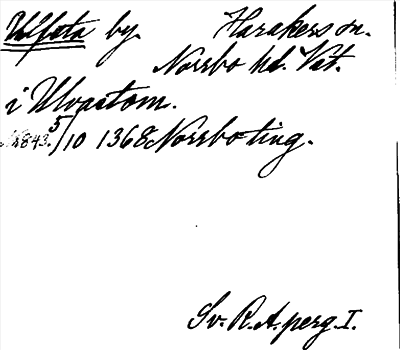 Ulfsta by. Harakers sn.
Norrbo hd. Vät.
i Ulvastom.
N:843. 5/10 1368 Norrboting.
Sv. R.A. perg. I.